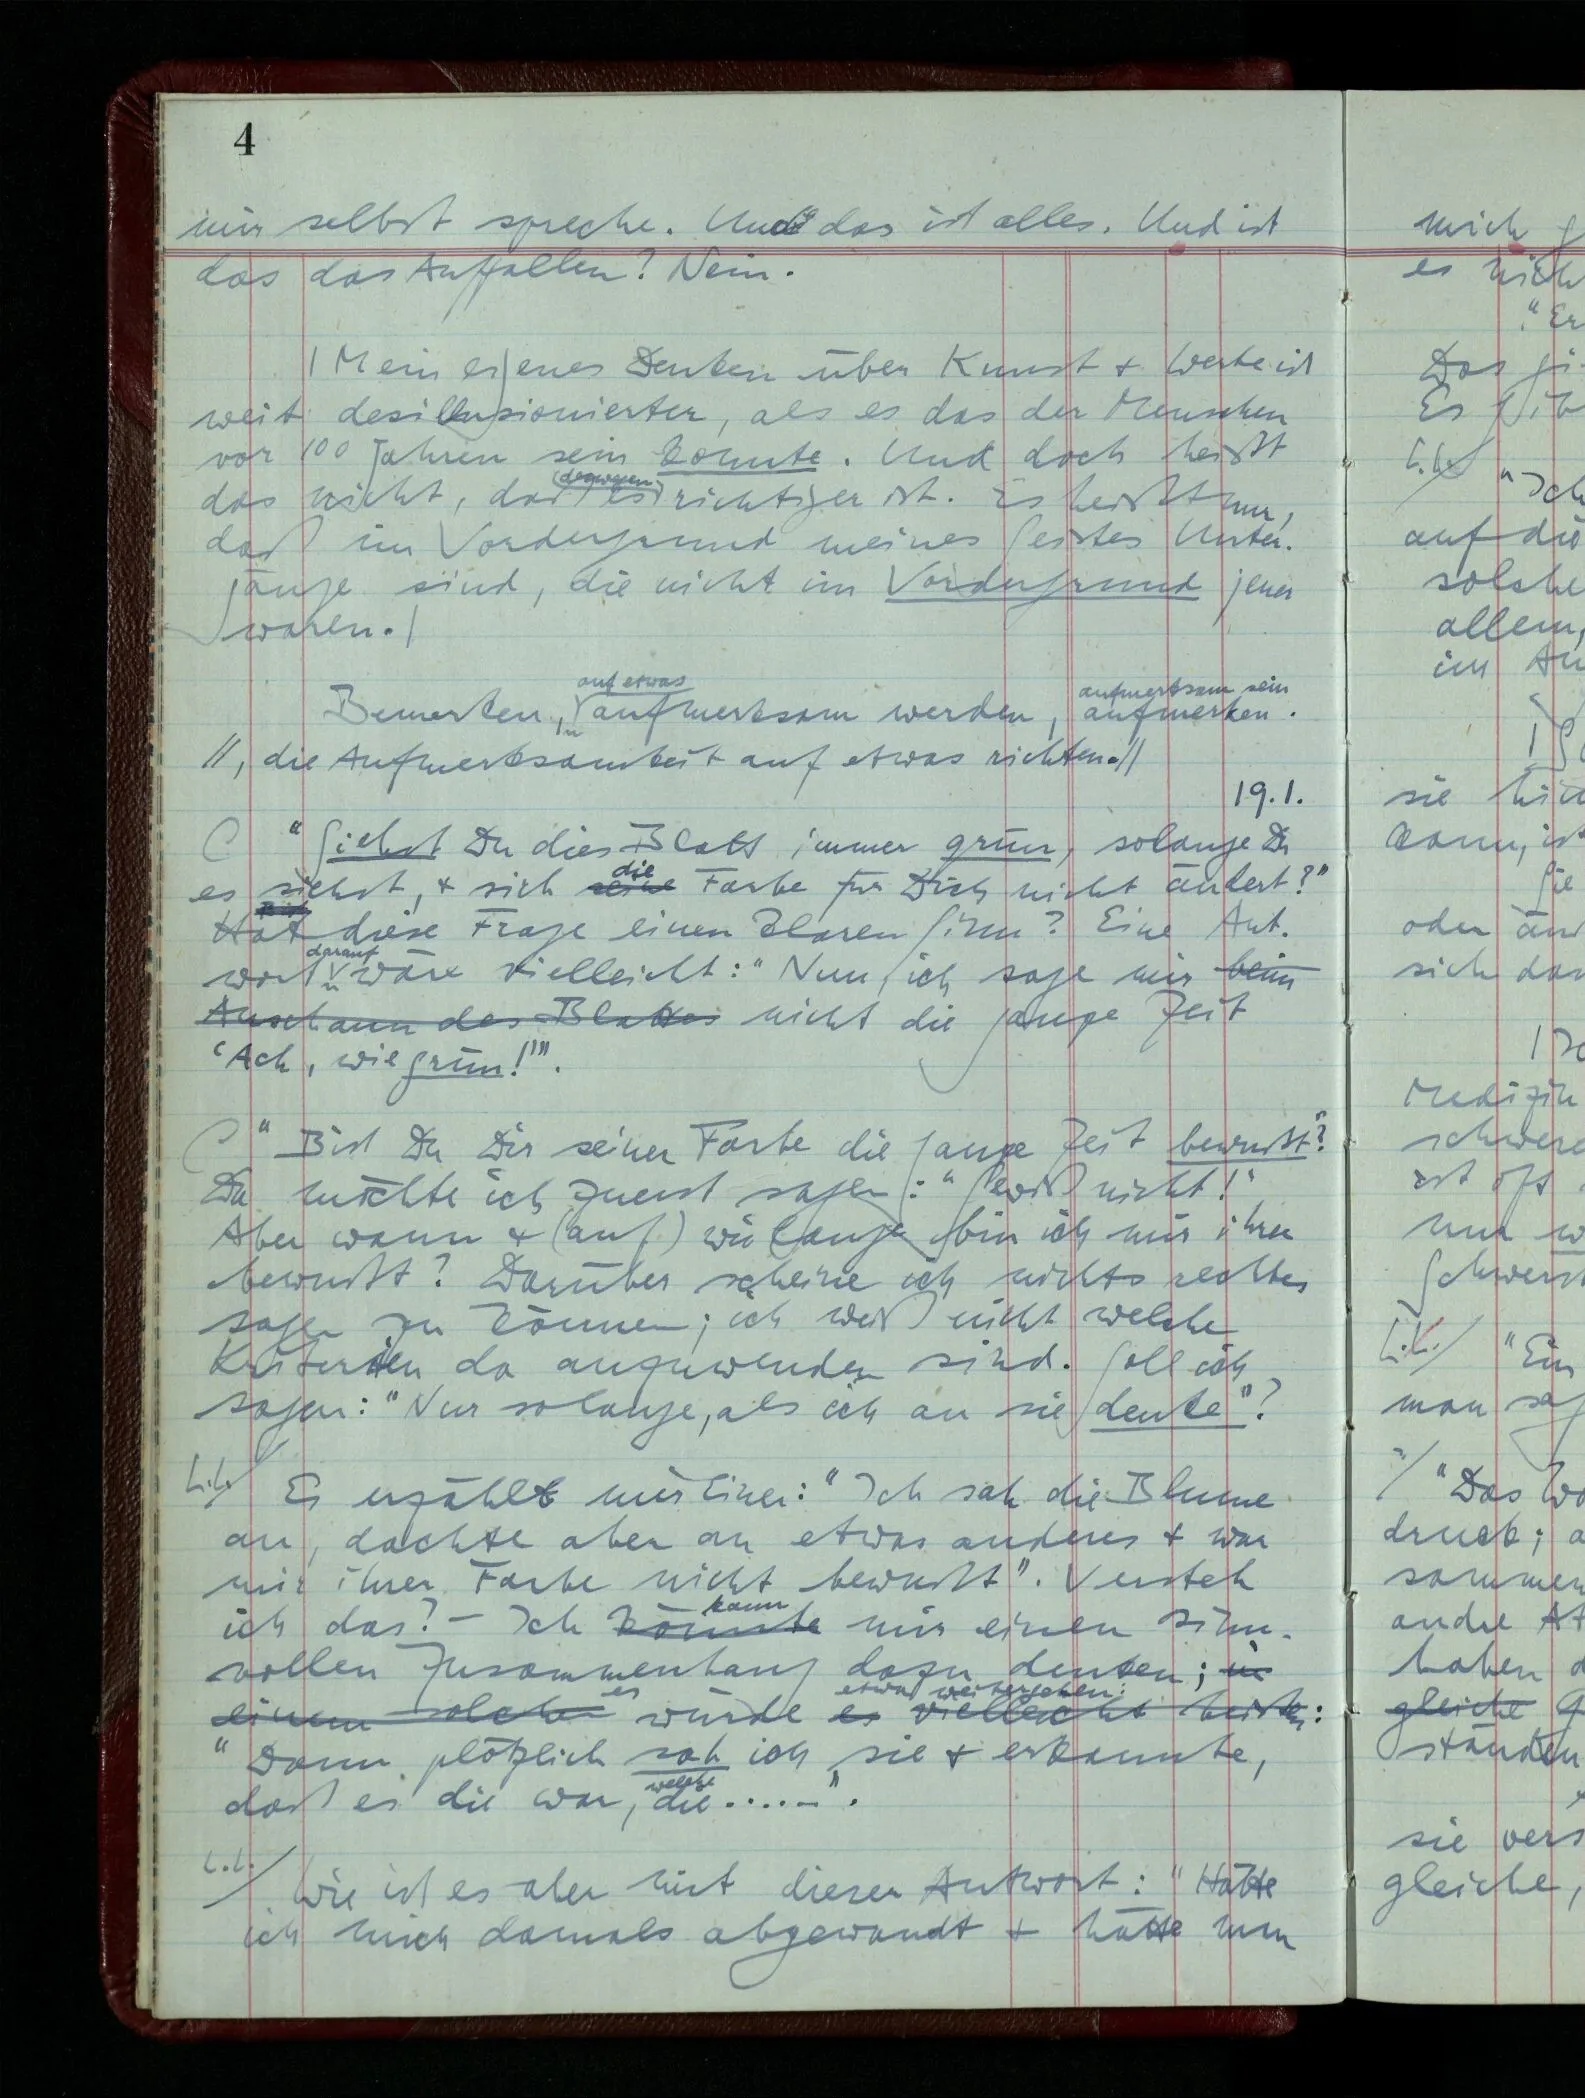 4
mir selbst spreche. Und das ist alles. Und ist
das das Auffallen? Nein.
| Mein eigenes Denken über Kunst & Werte ist
weit desillusionierter, als es das der Menschen
vor 100 Jahren sein konnte. Und doch heißt
das nicht, daß (deswegen) es richtiger ist. Es heißt nur,
daß im Vordergrund meines Geistes Unter-
gänge sind, die nicht im Vordergrund jener
waren. |
auf etwas aufmerksam sein
Bemerken, aufmerksam werden, aufmerken.
//, die Aufmerksamkeit auf etwas richten.//
19.1.
C "Siehst Du dies Blatt immer grün, solange Du
es siehst, & sich seine die Farbe für Dich nicht ändert?"
Hat diese Frage einen klaren Sinn? Eine Ant-
wort darauf wäre vielleicht: "Nun, ich sage mir beim
Anschaun des Blattes nicht die ganze Zeit
'Ach, wie grün!'".
C "Bist Du Dir seiner Farbe die ganze Zeit bewußt?"
Da möchte ich zuerst sagen: "Gewiß nicht!"
Aber wann & (auf) wie lange bin ich mir ihrer
bewußt? Darüber scheine ich nichts rechtes
sagen zu können; ich weiß nicht welche
Kriterien da anzuwenden sind. Soll ich
sagen: "Nur solange, als ich an sie denke"?
Es erzählt mir Einer: "Ich sah die Blume
an, dachte aber an etwas anderes & war
mir ihrer Farbe nicht bewußt". Versteh
ich das? – Ich könnte kann mir einen sinn-
vollen Zusammenhang dazu denken; in
einem solchen es würde es vielleicht heißen: etwa weitergehen:
"Dann plötzlich sah ich sie & erkannte,
daß es die war, die welche ......".
Wie ist es aber mit dieser Antwort: "Hätte
ich mich damals abgewandt & hätte nun
mich
es nich
"Er
Das gi
Es gib
"Ich
auf die
solche
allem,
im An
sie hie
kann, ist
Sie
oder än
sich dar
Medizin
schwere
ist oft
nur w
Schwerst
"Ein
man sag
"Das Wo
druck; a
sammen
andre At
haben d
gleiche G
ständen
sie vers
gleiche,